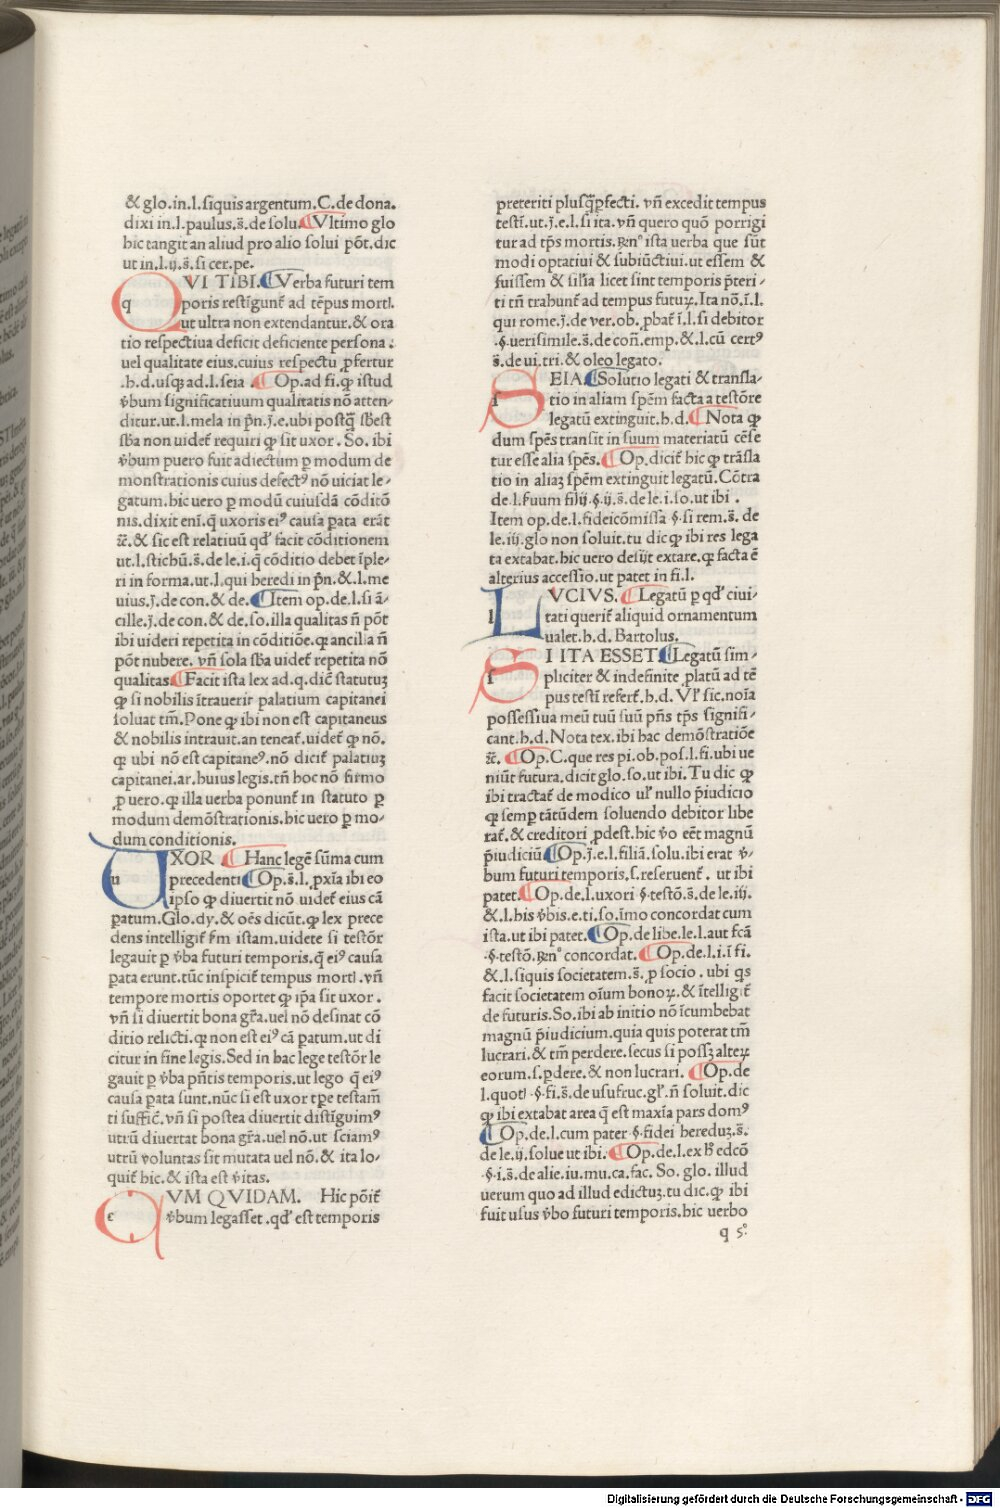 & glo.in.l.siquis argentum.C.de dona.
dixi in.l.paulus.s̄.de solu.¶Vltimo glo
hic tangit an aliud pro alio solui pōt.dic
ut in.l.ij.s̄.si cer.pe.
QVI TIBI.¶Verba futuri tem
poris restīgunt᷑ ad tēpus mortl.
ut ultra non extendantur.& ora
tio respectiua deficit deficiente persona :
uel qualitate eius.cuius respectu ꝓfertur
.h.d.usqꝫ ad.l.seia .¶Op.ad fi.ꝙ istud
v̄bum significatiuum qualitatis nō atten⸗
ditur.ut.l.mela in p̄n.j̄.e.ubi postꝗ̄ sb̄est
sb̄a non uidet᷑ requiri ꝙ sit uxor . So. ibi
v̄bum puero fuit adiectum ꝑ modum de
monstrationis cuius defectꝰ nō uiciat le⸗
gatum.hic uero ꝑ modū cuiusdā cōditō
nis.dixit enī.q̄ uxoris eiꝰ causa ꝑata erāt
⁊c̄.& sic est relatiuū qd' facit cōditionem
ut.l.stichū.s̄.de le.i.q̄ cōditio debet īple⸗
ri in forma.ut.l.qui heredi in p̄n.&.l.me
uius.j̄.de con.& de.¶Item op.de.l.si ā⸗
cille.j̄.de con.& de.so.illa qualitas n̄ pōt
ibi uideri repetita in cōditiōe.ꝙ ancilla n̄
pōt nubere. vn̄ sola sb̄a uidet᷑ repetita nō
qualitas.¶Facit ista lex ad.q.diēt statutuꝫ
ꝙ si nobilis ītrauerit palatium capitanei
soluat tm̄.Pone ꝙ ibi non est capitaneus
& nobilis intrauit.an teneat᷑.uidet᷑ ꝙ nō.
ꝙ ubi nō est capitaneꝰ.nō dicit᷑ palatiuꝫ
capitanei.ar.huius legis.tn̄ hoc nō firmo
ꝓ uero.ꝙ illa uerba ponunt᷑ in statuto ꝑ
modum demōstrationis.hic uero ꝑ mo⸗
dum conditionis.
VXOR ¶Hanc legē sūma cum
precedenti¶Op.s̄.l.ꝓxīa ibi eo
ipso ꝙ diuertit nō uidet᷑ eius cā
ꝑatum.Glo.dy.& oēs dicūt.ꝙ lex prece
dens intelligit᷑ fm̄ istam.uidete si testōr
legauit ꝑ v̄ba futuri temporis.q̄ eiꝰ causa
ꝑata erunt.tūc inspicit᷑ tempus mortl.vn̄
tempore mortis oportet ꝙ ip̄a sit uxor .
vn̄ si diuertit bona gr̄a.uel nō desinat cō
ditio relicti.ꝙ non est eiꝰ cā ꝑatum.ut di
citur in fine legis.Sed in hac lege testōr le
gauit ꝑ v̄ba pn̄tis temporis.ut lego q̄ eiꝰ
causa ꝑata sunt.nūc si est uxor tꝑe testam̄
ti suffic̄t.vn̄ si postea diuertit distīguimꝰ
utrū diuertat bona gr̄a.uel nō.ut sciamꝰ
utrū voluntas sit mutata uel nō.& ita lo⸗
quit᷑ hic.& ista est v̄itas.
CVM QVIDAM. Hic pōit᷑
v̄bum legasset.qd' est temporis
preteriti plusꝗ̄ꝑfecti. vn̄ excedit tempus
testī.ut.j̄.e.l.si ita.vn̄ quero quō porrigi
tur ad tp̄s mortis.Rn̄° ista uerba que sūt
modi optatiui & subiūctiui.ut essem &
fuissem & sil'ia licet sint temporis p̄teri⸗
ti tn̄ trahunt᷑ ad tempus futuꝝ. Ita nō.ī.l.
qui rome.j̄.de ver.ob.ꝓbat᷑ ī.l.si debitor
.§.uerisimile.s̄.de con̄.emp.&.l.cū certꝰ
s̄.de ui.tri.& oleo legato.
SEIA.¶Solutio legati & transla⸗
tio in aliam spēm facta a testōre
legatū extinguit.h.d.¶Nota ꝙ
dum spēs transit in suum materiatū cēse
tur esse alia spēs.¶Op.dicit᷑ hic ꝙ trāsla
tio in aliaꝫ spēm extinguit legatū. Cōtra
de.l.fuum filij.§.ij.s̄.de le.i.so.ut ibi .
Item op.de.l.fideicōmissa.§.si rem.s̄. de
le.iij.glo non soluit.tu dic ꝙ ibi res lega
ta extabat.hic vero desijt extare.ꝙ facta ē
alterius accessio.ut patet in fi.l.
LVCIVS. ¶Legatū ꝑ qd' ciui⸗
tati querit᷑ aliquid ornamentum
ualet.h.d. Bartolus.
SI ITA ESSET.¶Legatū sim⸗
pliciter & indefinite ꝓlatū ad tē
pus testī refert᷑.h.d. Vl' sic.noīa
possessiua meū tuū suū pn̄s tp̄s signifi⸗
cant.h.d.Nota tex.ibi hac demōstratiōe
⁊c̄. ¶Op.C.que res pi.ob.pos.l.fi.ubi ue
niūt futura.dicit glo.so.ut ibi.Tu dic ꝙ
ibi tractat᷑ de modico ul' nullo p̄iudicio
ꝙ semꝑ tātūdem soluendo debitor libe
rat᷑.& creditori ꝓdest.hic v̄o eēt magnū
p̄iudiciū¶Op.j̄.e.l.filiā.solu.ibi erat v̄⸗
bum futuri temporis.s.reseruent᷑ . ut ibi
patet.¶Op.de.l.uxori.§.testō.s̄.de le.iij.
&.l.his v̄bis.e.ti.so.īmo concordat cum
ista.ut ibi patet.¶Op.de libe.le.l.aut fcā
.§.testō.Rn̄° concordat.¶Op.de.l.i.ī fi.
&.l.siquis societatem.s̄.ꝓ socio.ubi qs
facit societatem oīum bonoꝝ.& ītelligit᷑
de futuris.So.ibi ab initio nō īcumbebat
magnū p̄iudicium.quia quis poterat tm̄
lucrari.& tm̄ perdere.secus si possꝫ alteꝝ
eorum.s.ꝑdere.& non lucrari. ¶Op.de
l.quotl.§.fi.s̄.de usufruc.gl'.n̄ soluit.dic
ꝙ ibi extabat area q̄ est maxīa pars domꝰ
¶Op.de.l.cum pater.§.fidei hereduꝫ.s̄.
de le.ij.solue ut ibi.¶Op.de.l.ex h' edcō
.§.i.s̄.de alie.iu.mu.ca.fac. So. glo. illud
uerum quo ad illud edictuꝫ.tu dic.ꝙ ibi
fuit usus v̄bo futuri temporis.hic uerbo
q 5°
Digitalisierung gefördert durch die Deutsche Forschungsgemeinschaft - DFG